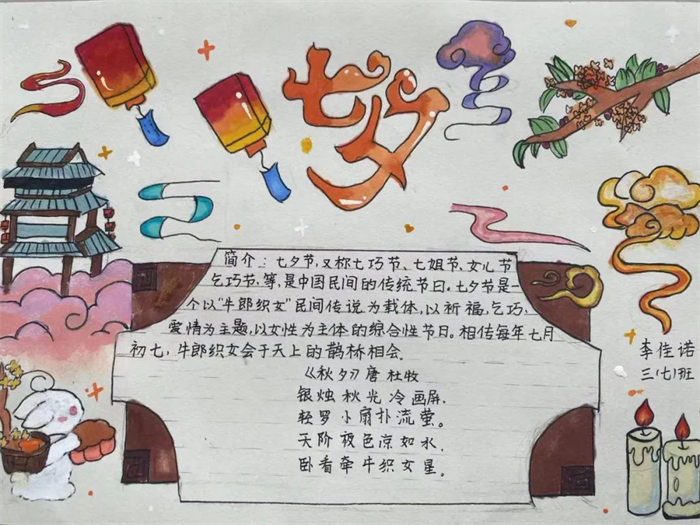 七夕
简介：七夕节，又称七巧节、七姐节、女儿节
乞巧节，等，是中国民间的传统节日，七夕节是一
个以“牛郎织女”民间传说为载体，以祈福，乞巧，
爱情为主题，以女性为主体的综合性节日。相传每年七月
初七，牛郎织女会于天上的鹊桥相会．
《秋夕》唐 杜牧
银烛秋光冷画屏．
轻罗小扇扑流萤。
天阶夜色凉如水．
卧看牵牛织女星．
李佳诺
三（七）班